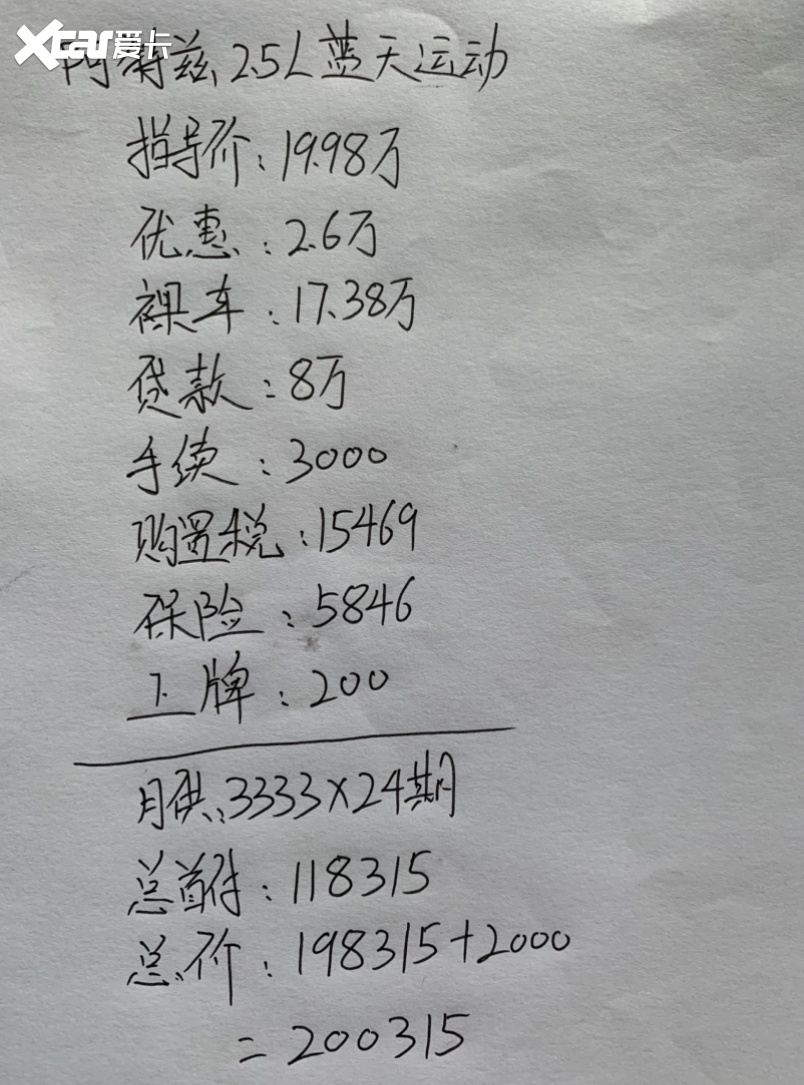 Xcar爱卡
阿特兹 2.5L 蓝天运动
指导价：19.98万
优惠：2.6万
裸车：17.38万
贷款：8万
手续：3000
购置税：15469
保险：5846
上牌：200
月供：3333×24期
总首付：118315
总价：198315+2000
=200315